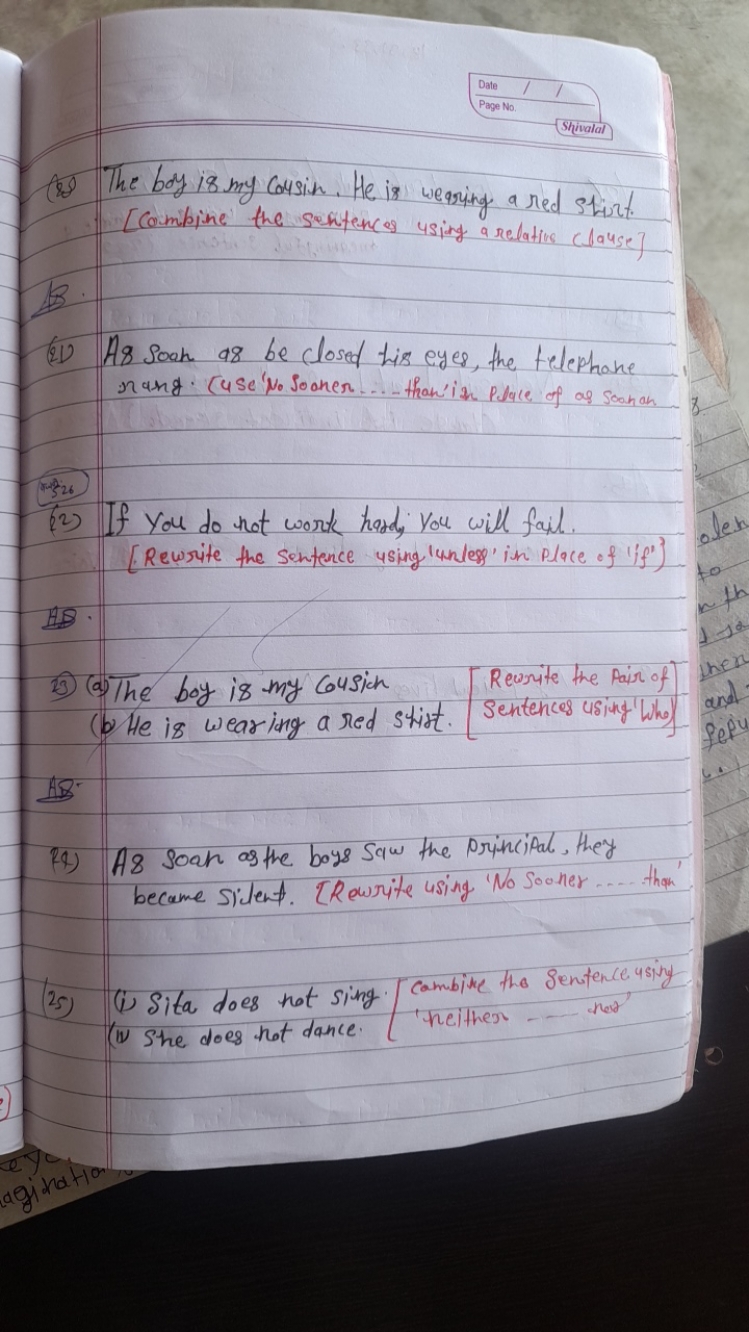 Date / /
Page No.
Shivalal
The boy is my Cousin. He is wearing a red shirt.
[Combine the sentences using a relative clause]
AS.
(21) As soon as be closed his eyes, the telephone
rang. (use 'No Sooner .... than' in Place of as soon as
526
(22) If you do not work hard, you will fail.
[Rewrite the sentence using 'unless' in Place of 'if']
AS.
23) (a) The boy is my Cousin [Rewrite the Pair of
(b) He is wearing a red shirt. Sentences using 'Who]
AS.
24) As soon as the boys saw the principal, they
became silent. [Rewrite using 'No Sooner .... than'
(25) (i) Sita does not sing. [Combine the Sentence using
(ii) She does not dance. 'neither .... nor'
olen
to
n th
then
and
eye
agination